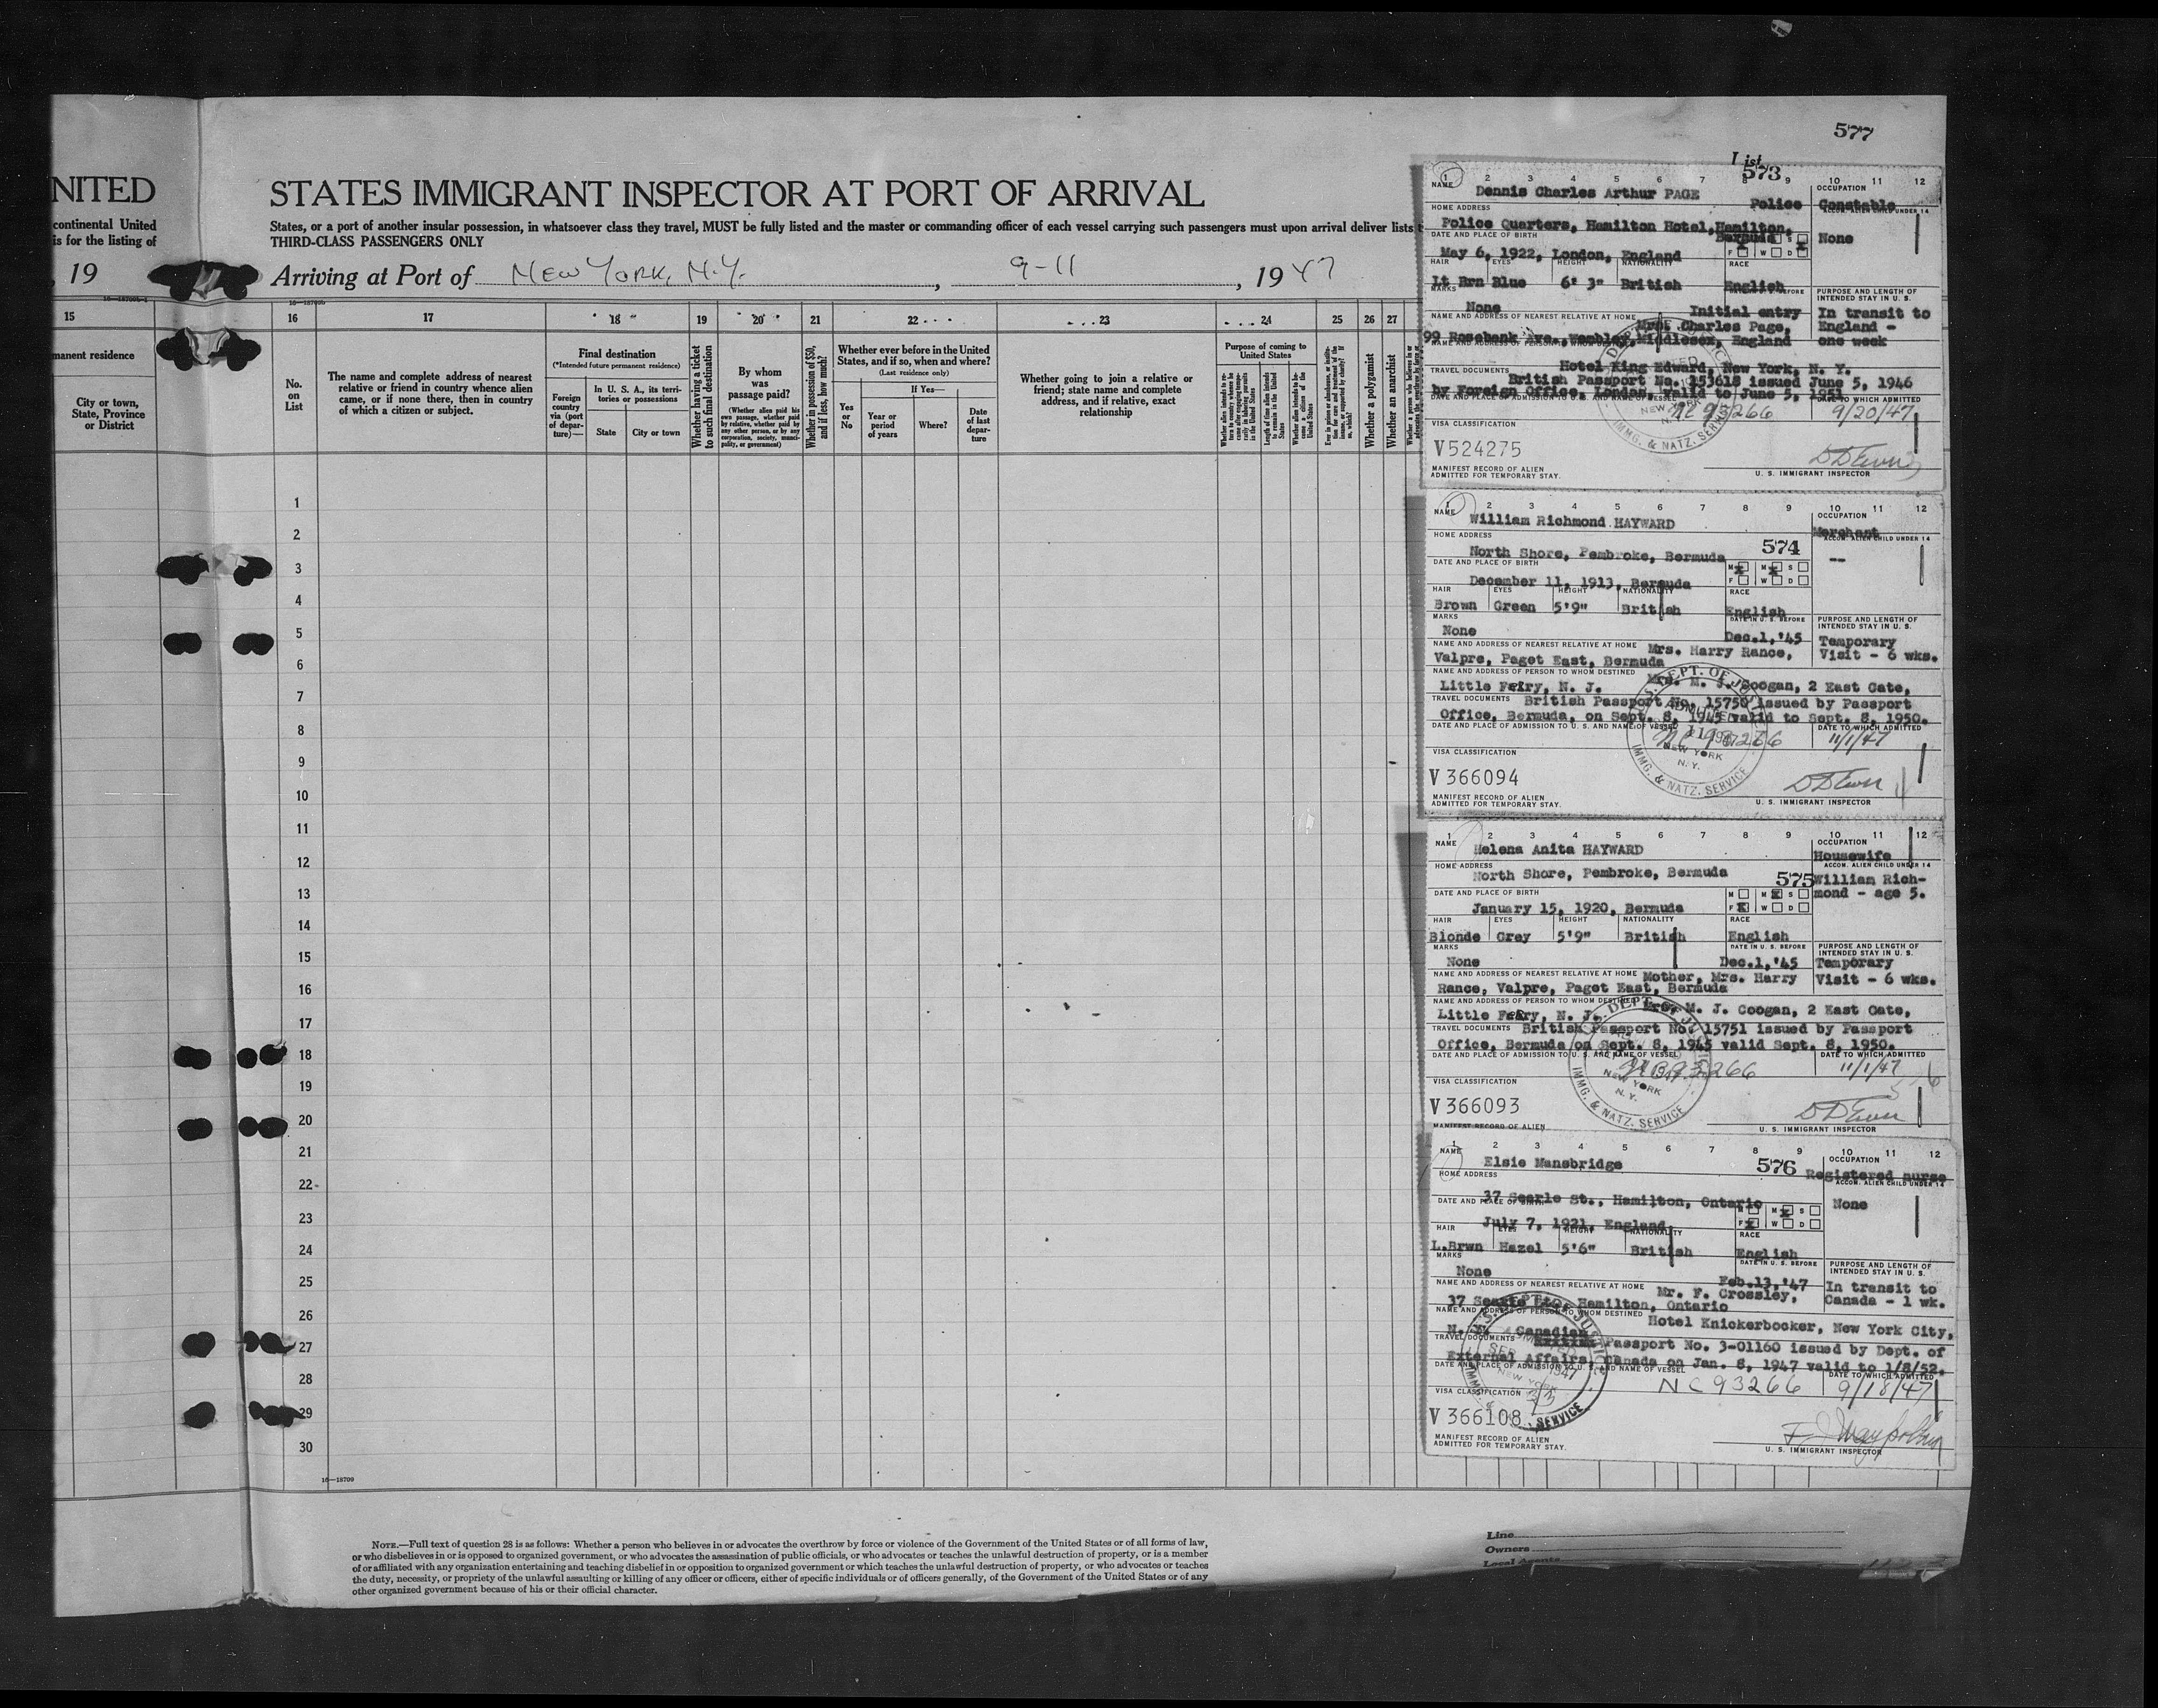 577
List
NITED
STATES IMMIGRANT INSPECTOR AT PORT OF ARRIVAL
continental United
is for the listing of
States, or a port of another insular possession, in whatsoever class they travel, MUST be fully listed and the master or commanding officer of each vessel carrying such passengers must upon arrival deliver lists
THIRD-CLASS PASSENGERS ONLY
, 19
Arriving at Port of NEW YORK, N.Y. , 9-11 , 1947
16—18709b
15 16 17 18 19 20 21 22 23 24 25 26 27
manent residence
City or town, State, Province or District
No. on List
The name and complete address of nearest relative or friend in country whence alien came, or if none there, then in country of which a citizen or subject.
Final destination
(*Intended future permanent residence)
Foreign country via (port of departure)—
In U. S. A., its territories or possessions
State
City or town
Whether having a ticket to such final destination
By whom was passage paid?
(Whether alien paid his own passage, whether paid by relative, whether paid by any other person, or by any corporation, society, municipality, or government)
Whether in possession of $50, and if less, how much?
Whether ever before in the United States, and if so, when and where?
(Last residence only)
Yes or No
If Yes—
Year or period of years
Where?
Date of last departure
Whether going to join a relative or friend; state name and complete address, and if relative, exact relationship
Purpose of coming to United States
Length of time alien intends to remain in the United States
Whether alien intends to become a citizen of the United States
Whether a polygamist
Whether an anarchist
1
2
3
4
5
6
7
8
9
10
11
12
13
14
15
16
17
18
19
20
21
22
23
24
25
26
27
28
29
30
16—18709
1 2 3 4 5 6 7 8 9 10 11 12
573
NAME Dennis Charles Arthur PAGE
OCCUPATION Police Constable
HOME ADDRESS
ACCOM. ALIEN CHILD UNDER 14
Police Quarters, Hamilton Hotel, Hamilton, Bermuda
None
DATE AND PLACE OF BIRTH
May 6, 1922, London, England
M X M S
F W D
HAIR EYES HEIGHT NATIONALITY RACE
Lt Brn Blue 6' 3" British English
MARKS
None
Initial entry
PURPOSE AND LENGTH OF INTENDED STAY IN U. S.
In transit to England - one week
NAME AND ADDRESS OF NEAREST RELATIVE AT HOME
Mrs. Charles Page,
99 Rosebank Ave., Wembley, Middlesex, England
Hotel King Edward, New York, N. Y.
TRAVEL DOCUMENTS
British Passport No. 153618 issued June 5, 1946
by Foreign Office, London, valid to June 5, 1951
DATE AND PLACE OF ADMISSION TO U. S. AND NAME OF VESSEL
NC 93266
DATE TO WHICH ADMITTED
9/20/47
VISA CLASSIFICATION
V524275
MANIFEST RECORD OF ALIEN
ADMITTED FOR TEMPORARY STAY.
U. S. IMMIGRANT INSPECTOR
1 2 3 4 5 6 7 8 9 10 11 12
NAME William Richmond HAYWARD
OCCUPATION
Merchant
HOME ADDRESS
574
ACCOM. ALIEN CHILD UNDER 14
North Shore, Pembroke, Bermuda
--
DATE AND PLACE OF BIRTH
M X M X S
F W D
December 11, 1913, Bermuda
HAIR EYES HEIGHT NATIONALITY RACE
Brown Green 5'9" British English
MARKS
DATE IN U. S. BEFORE
PURPOSE AND LENGTH OF INTENDED STAY IN U. S.
None
Dec.1,'45
Temporary Visit - 6 wks.
NAME AND ADDRESS OF NEAREST RELATIVE AT HOME
Mrs. Harry Rance,
Valpre, Paget East, Bermuda
NAME AND ADDRESS OF PERSON TO WHOM DESTINED
Mrs. M. J. Coogan, 2 East Gate,
Little Ferry, N. J.
TRAVEL DOCUMENTS
British Passport No. 15750 issued by Passport
Office, Bermuda, on Sept. 8, 1945 valid to Sept. 8, 1950.
DATE AND PLACE OF ADMISSION TO U. S. AND NAME OF VESSEL
NC 93266
DATE TO WHICH ADMITTED
11/1/47
VISA CLASSIFICATION
V 366094
MANIFEST RECORD OF ALIEN
ADMITTED FOR TEMPORARY STAY.
U. S. IMMIGRANT INSPECTOR
1 2 3 4 5 6 7 8 9 10 11 12
NAME Helena Anita HAYWARD
OCCUPATION
Housewife
HOME ADDRESS
ACCOM. ALIEN CHILD UNDER 14
North Shore, Pembroke, Bermuda
575
William Richmond - age 5.
DATE AND PLACE OF BIRTH
M M X S
F X W D
January 15, 1920, Bermuda
HAIR EYES HEIGHT NATIONALITY RACE
Blonde Grey 5'9" British English
MARKS
DATE IN U. S. BEFORE
PURPOSE AND LENGTH OF INTENDED STAY IN U. S.
None
Dec.1,'45
Temporary Visit - 6 wks.
NAME AND ADDRESS OF NEAREST RELATIVE AT HOME
Mother, Mrs. Harry
Rance, Valpre, Paget East, Bermuda
NAME AND ADDRESS OF PERSON TO WHOM DESTINED
Mrs. M. J. Coogan, 2 East Gate,
Little Ferry, N. J.
TRAVEL DOCUMENTS
British Passport No. 15751 issued by Passport
Office, Bermuda on Sept. 8, 1945 valid Sept. 8, 1950.
DATE AND PLACE OF ADMISSION TO U. S. AND NAME OF VESSEL
NC 93266
DATE TO WHICH ADMITTED
11/1/47
VISA CLASSIFICATION
V 366093
MANIFEST RECORD OF ALIEN
U. S. IMMIGRANT INSPECTOR
1 2 3 4 5 6 7 8 9 10 11 12
NAME Elsie Mansbridge
576
OCCUPATION
Registered nurse
HOME ADDRESS
ACCOM. ALIEN CHILD UNDER 14
37 Searle St., Hamilton, Ontario
None
DATE AND PLACE OF BIRTH
July 7, 1921, England
M M X S
F X W D
HAIR EYES HEIGHT NATIONALITY RACE
L.Brwn Hazel 5'6" British English
MARKS
DATE IN U. S. BEFORE
PURPOSE AND LENGTH OF INTENDED STAY IN U. S.
None
Feb.13,'47
In transit to Canada - 1 wk.
NAME AND ADDRESS OF NEAREST RELATIVE AT HOME
Mr. F. Crossley,
37 Searle St., Hamilton, Ontario
NAME AND ADDRESS OF PERSON TO WHOM DESTINED
Hotel Knickerbocker, New York City,
N. Y.
TRAVEL DOCUMENTS
Canadian Passport No. 3-01160 issued by Dept. of
External Affairs, Canada on Jan. 8, 1947 valid to 1/8/52.
DATE AND PLACE OF ADMISSION TO U. S. AND NAME OF VESSEL
NC93266
DATE TO WHICH ADMITTED
9/18/47
VISA CLASSIFICATION
V 366108
MANIFEST RECORD OF ALIEN
ADMITTED FOR TEMPORARY STAY.
U. S. IMMIGRANT INSPECTOR
Line
Owners
Local Agents
NOTE.—Full text of question 28 is as follows: Whether a person who believes in or advocates the overthrow by force or violence of the Government of the United States or of all forms of law,
or who disbelieves in or is opposed to organized government, or who advocates the assassination of public officials, or who advocates or teaches the unlawful destruction of property, or is a member
of or affiliated with any organization entertaining and teaching disbelief in or opposition to organized government or which teaches the unlawful destruction of property, or who advocates or teaches
the duty, necessity, or propriety of the unlawful assaulting or killing of any officer or officers, either of specific individuals or of officers generally, of the Government of the United States or of any
other organized government because of his or their official character.